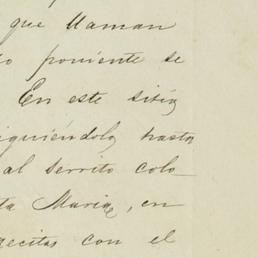 que llaman
lo poniente se
. En este sitio
iguiéndolo hasta
al serrito colo-
ta Maria, en
gecitas con el